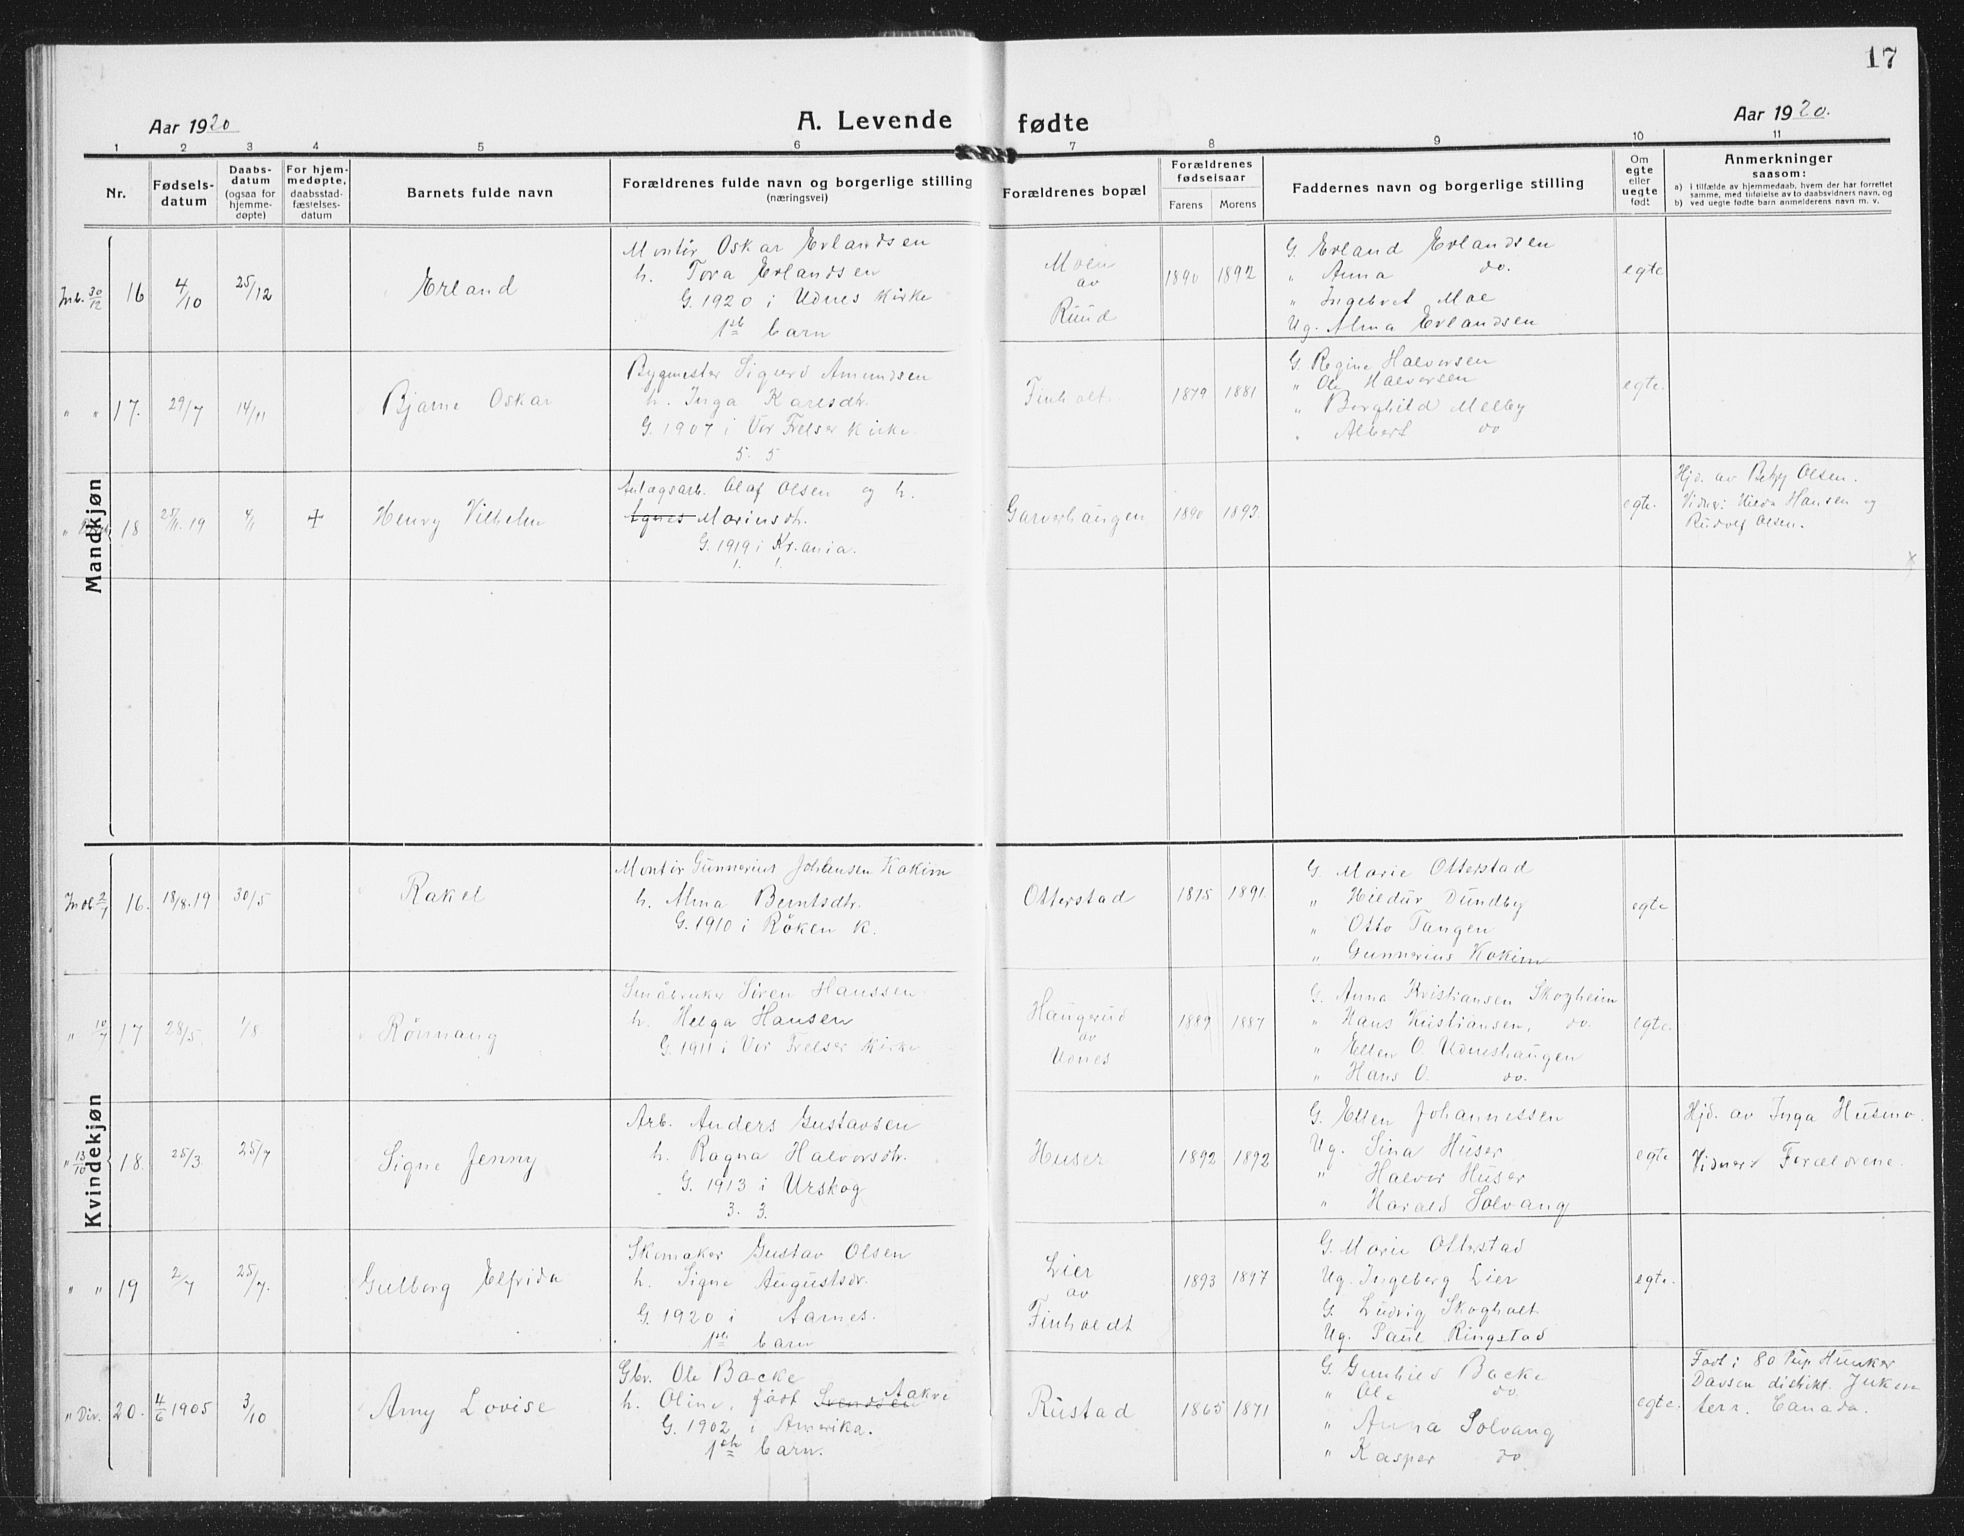 17
Aar 1920
A. Levende fødte
Aar 1920.
1 2 3 4 5 6 7 8 9 10 11
Nr.
Fødsels-
datum
Daabs-
datum
(ogsaa for
hjemme-
døpte)
For hjem-
medøpte,
daabsstad-
fæstelses-
datum
Barnets fulde navn
Forældrenes fulde navn og borgerlige stilling
(næringsvei)
Forældrenes bopæl
Forældrenes
fødselsaar
Farens Morens
Faddernes navn og borgerlige stilling
Om
egte
eller
uegte
født
Anmerkninger
saasom:
a) i tilfælde av hjemmedaab, hvem der har forrettet
samme, med tilføielse av to daabsvidners navn, og
b) ved uegte fødte barn anmelderens navn m. v.
Mandkjøn
30/12 16 4/10 25/12 Erland
Montør Oskar Erlandsen
h. Tora Erlandsen
G. 1920 i Udnes Kirke
1ste barn
Moen
av
Ruud
1890 1892
G. Erland Erlandsen
" Anna do.
" Ingebret Moe
Ug. Alma Erlandsen
egte
" " 17. 29/7 14/11 Bjarne Oskar
Bygmester Sigurd Amundsen
h. Inga Karlsdtr.
G. 1907 i Vor Frelser Kirke
5. 5
Finholt
1879 1881
G. Regine Halvorsen
" Ole Halvorsen
" Borghild Melby
" Albert do
egte.
18 25/11.19 4/1 + Henry Vilhelm
Anlægsarb. Olaf Olsen og h.
Agnes Mariusdtr.
G. 1919 i Kr.ania.
1. 1.
Garverhaugen
1890 1893
egte.
Hjd. av Olsen.
Vidner: Hilda Hansen og
Rudolf Olsen.
Kvindekjøn
2/1 16. 18/8.19 30/5 Rakel
Montør Gunnerius Johansen Kokim
h. Alma Berntsdtr.
G. 1910 i Røken K.
Otterstad
1875 1891
G. Marie Otterstad
" Hildur Dundby
" Otto Tangen
" Gunnerius Kokim
egte
" 10/7 17 28/5. 1/8 Rönnaug
Småbruker Søren Hanssen
h. Helga Hansen
G. 1911 i Vor Frelser Kirke
Haugerud
av
Udnes
1889 1887
G. Anna Kristiansen Skogheim
" Hans Kristiansen, do.
" Ellen O. Udneshaugen
" Hans O. do.
egte.
" 13/10 18. 25/3. 25/7 Signe Jenny
Arb. Anders Gustavsen
h. Ragna Halvorsdtr.
G. 1913 i Urskog
3. 3.
Huser
1892 1892
G. Ellen Johannessen
Ug. Sina Huser
" Halvor Huser
" Harald Solvang
egte
Hjd. av Inga Husmo.
Vidner: Forældrene.
" " 19 2/7 25/7. Gulborg Elfrida
Skomaker Gustav Olsen
h. Signe Augustsdr.
G. 1920 i Aarnes.
1ste barn
Lier
av
Finholdt
1893 1897
G. Marie Otterstad
Ug. Ingeborg Lier
G. Ludvig Skogholt
Ug. Paul Ringstad
egte.
" Div. 20. 4/6 1905 3/10 Amy Lovise
Gbr. Ole Backe
h. Oline, født Svendsen Aakre
G. 1902 i Amerika.
1ste barn.
Rustad
1865 1871
G. Gunhild Backe
" Ole do.
" Anna Solvang
" Kasper do.
egte.
Født i 80 Pup Hunker
Dawson distrikt. Jukon
terr. Canada.